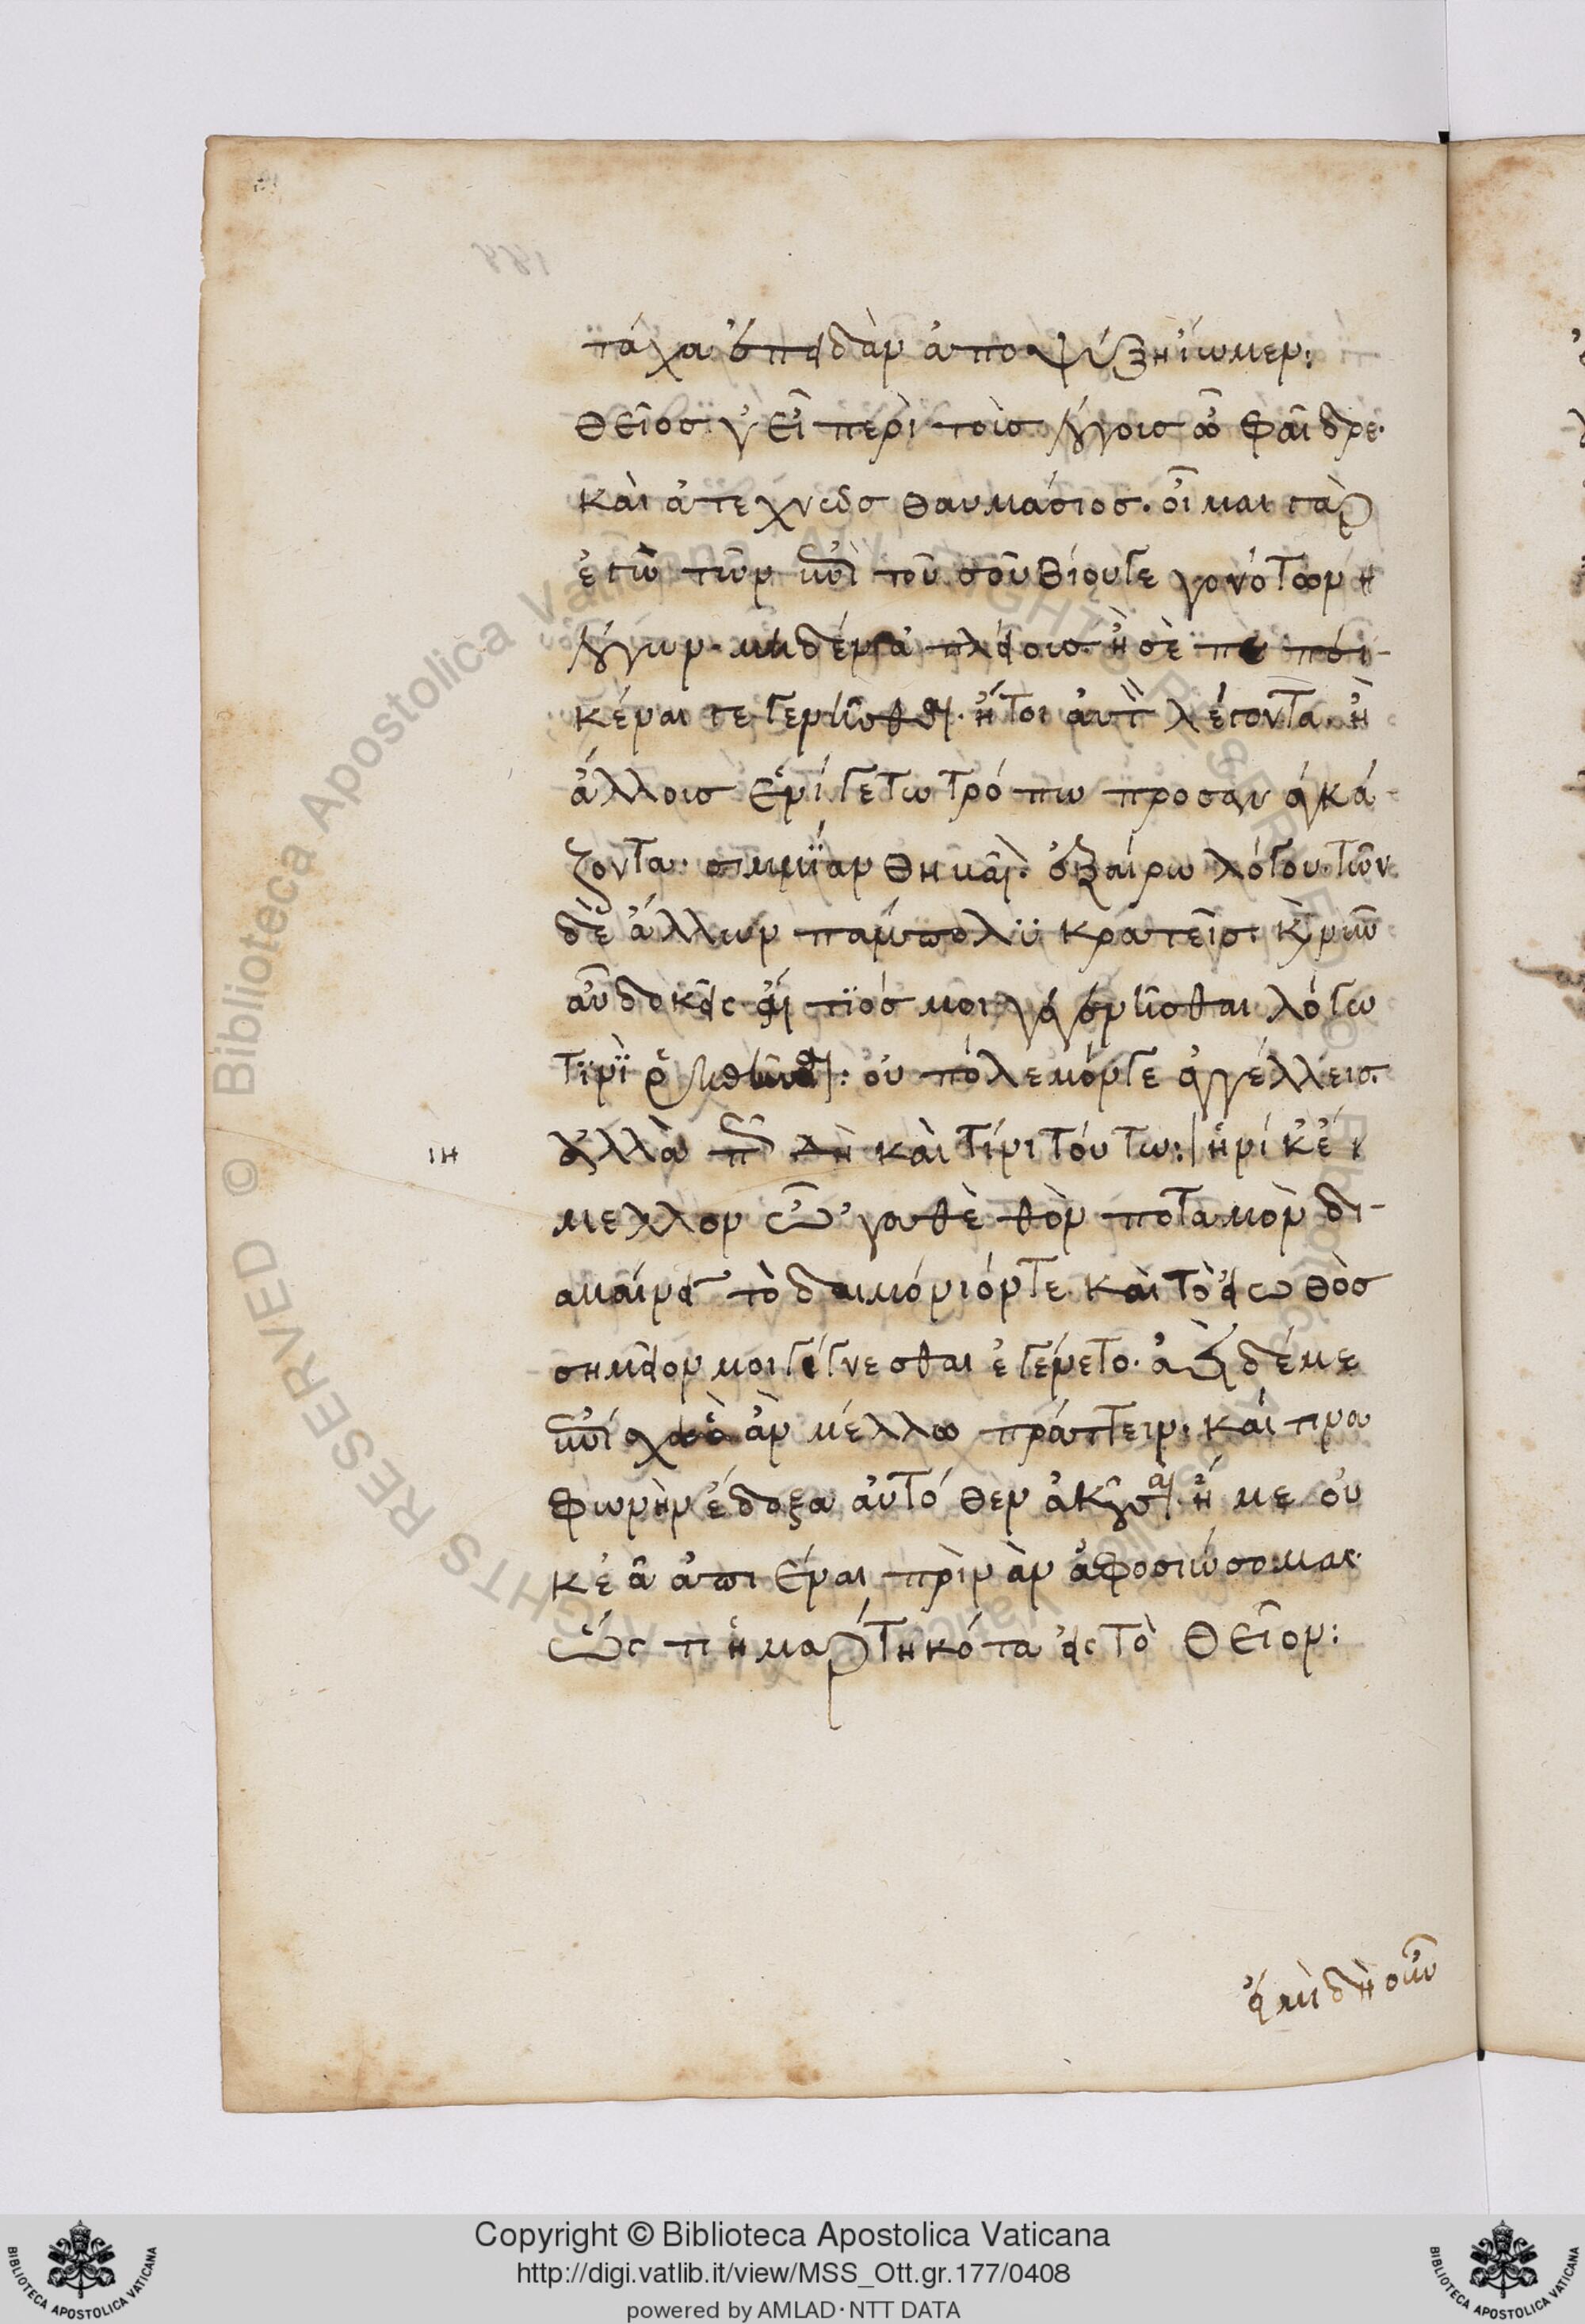 τάχα ἐπειδὰν ἀποψυξῇ ἴωμεν:
θεῖος γ' εἶ περὶ τοὺς λόγους ὦ Φαῖδρε·
καὶ ἀτεχνῶς θαυμάσιος. οἶμαι γὰρ
ἐγὼ τῶν ἐπὶ τοῦ σοῦ βίου γεγονότων
λόγων. μηδένα πλείους ἢ σὲ πεποι-
κέναι γεγενῆσθαι. ἤτοι αὐτὸν λέγοντα. ἢ
ἄλλους ἑνί γέ τω τρόπω προσαναγκά-
ζοντα. σιμμίαν θηβαῖον ἐξαίρω λόγου. τῶν
δὲ ἄλλων παμπολὺ κρατεῖς. καὶ νῦν
αὖ δοκεῖς αἴτιός μοι γεγενῆσθαι λόγω
τινὶ ῥηθῆναι: οὐ πόλεμόν γε ἀγγέλλεις.
ἀλλὰ πῶς δὴ καὶ τίνι τούτω: ἡνίκ' ἔ-
μελλον ὦ 'γαθὲ τὸν ποταμὸν δι-
αβαίνειν τὸ δαιμόνιόν τε καὶ τὸ εἰωθὸς
σημεῖον μοι γίγνεσθαι ἐγένετο. ἀεὶ δέ με
ἐπίσχει ὃ ἂν μέλλω πράττειν. καί τινα
φωνὴν ἔδοξα αὐτόθεν ἀκοῦσαι. ἥ με οὐ
κ ἐᾷ ἀπιέναι πρὶν ἂν ἀφοσιώσωμαι.
ὥς τι ἡμαρτηκότα εἰς τὸ θεῖον:
ιη
εἰμὶ δὴ οὖν
Copyright © Biblioteca Apostolica Vaticana
http://digi.vatlib.it/view/MSS_Ott.gr.177/0408
powered by AMLAD·NTT DATA